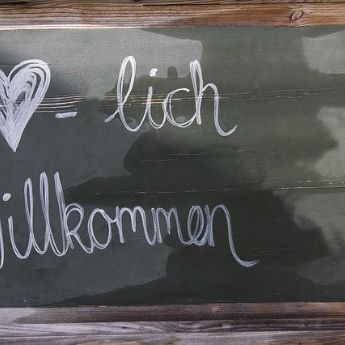 ♥ - lich
willkommen